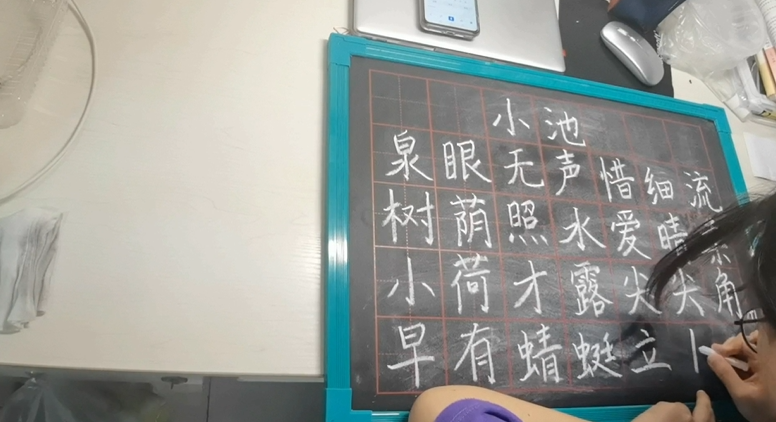 小池
泉眼无声惜细流
树荫照水爱晴
小荷才露尖尖角
早有蜻蜓立